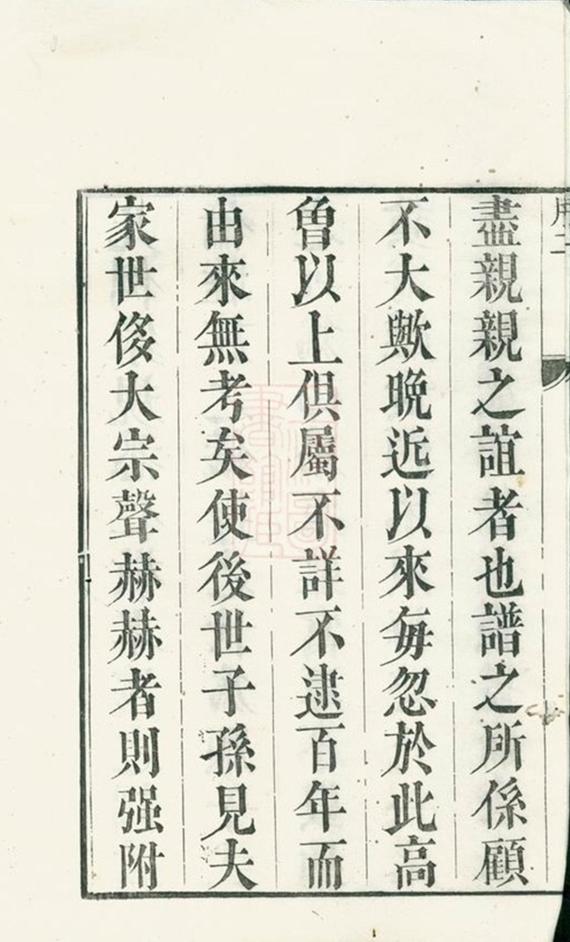 序二
盡親親之誼者也譜之所係顧
不大歟晚近以來每忽於此高
曾以上俱屬不詳不逮百年而
由來無考矣使後世子孫見夫
家世侈大宗聲赫赫者則强附